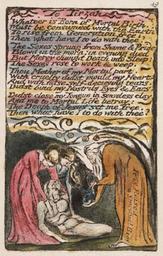 To Tirzah
Whate'er is Born of Mortal Birth,
Must be consumed with the Earth
To rise from Generation free;
Then what have I to do with thee?
The Sexes sprung from Shame & Pride
Blow'd in the morn: in evening died
But Mercy changd Death into Sleep;
The Sexes rose to work & weep.
Thou Mother of my Mortal part
With cruelty didst mould my Heart.
And with false self-decieving tears,
Didst bind my Nostrils Eyes & Ears.
Didst close my Tongue in senseless clay
And me to Mortal Life betray:
The Death of Jesus set me free,
Then what have I to do with thee?